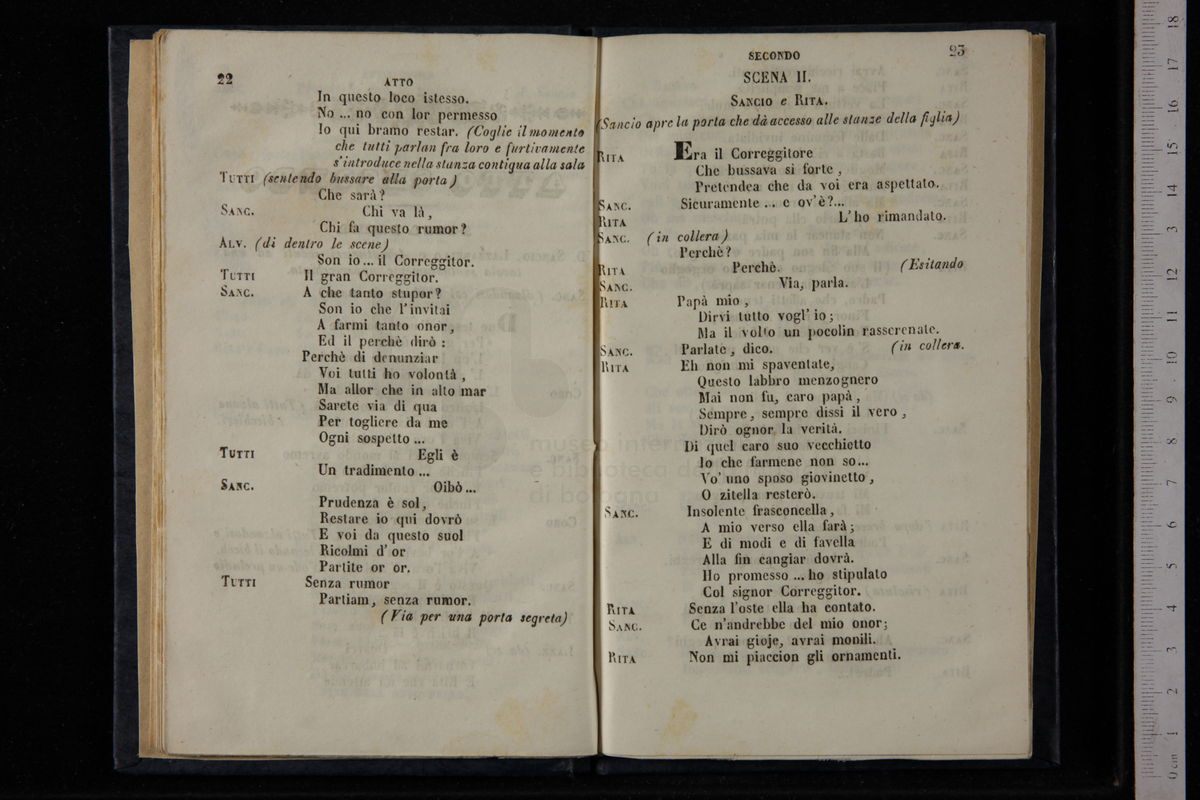 22
ATTO
In questo loco istesso.
No ... no con lor permesso
Io qui bramo restar. (Coglie il momento
che tutti parlan fra loro e furtivamente
s'introduce nella stanza contigua alla sala
TUTTI (sentendo bussare alla porta)
Che sarà?
SANC. Chi va là,
Chi fa questo rumor?
ALV. (di dentro le scene)
Son io ... il Correggitor.
TUTTI Il gran Correggitor.
SANC. A che tanto stupor?
Son io che l'invitai
A farmi tanto onor,
Ed il perchè dirò :
Perchè di denunziar
Voi tutti ho volontà ,
Ma allor che in alto mar
Sarete via di qua
Per togliere da me
Ogni sospetto ...
TUTTI Egli è
Un tradimento ...
SANC. Oibò ...
Prudenza è sol,
Restare io qui dovrò
E voi da questo suol
Ricolmi d' or
Partite or or.
TUTTI Senza rumor
Partiam, senza rumor.
(Via per una porta segreta)
SECONDO
23
SCENA II.
SANCIO e RITA.
(Sancio apre la porta che dà accesso alle stanze della figlia)
RITA Era il Correggitore
Che bussava sì forte ,
Pretendea che da voi era aspettato.
SANC. Sicuramente .. e ov'è?...
RITA L'ho rimandato.
SANC. (in collera)
Perchè?
RITA Perchè. (Esitando
SANC. Via, parla.
RITA Papà mio ,
Dirvi tutto vogl' io ;
Ma il volto un pocolin rasserenate.
SANC. Parlate , dico. (in collera.
RITA Eh non mi spaventate,
Questo labbro menzognero
Mai non fu, caro papà ,
Sempre, sempre dissi il vero ,
Dirò ognor la verità.
Di quel caro suo vecchietto
Io che farmene non so...
Vo' uno sposo giovinetto ,
O zitella resterò.
SANC. Insolente frasconcella ,
A mio verso ella farà ;
E di modi e di favella
Alla fin cangiar dovrà.
Ho promesso ... ho stipulato
Col signor Correggitor.
RITA Senza l'oste ella ha contato.
SANC. Ce n'andrebbe del mio onor;
Avrai gioje, avrai monili.
RITA Non mi piaccion gli ornamenti.